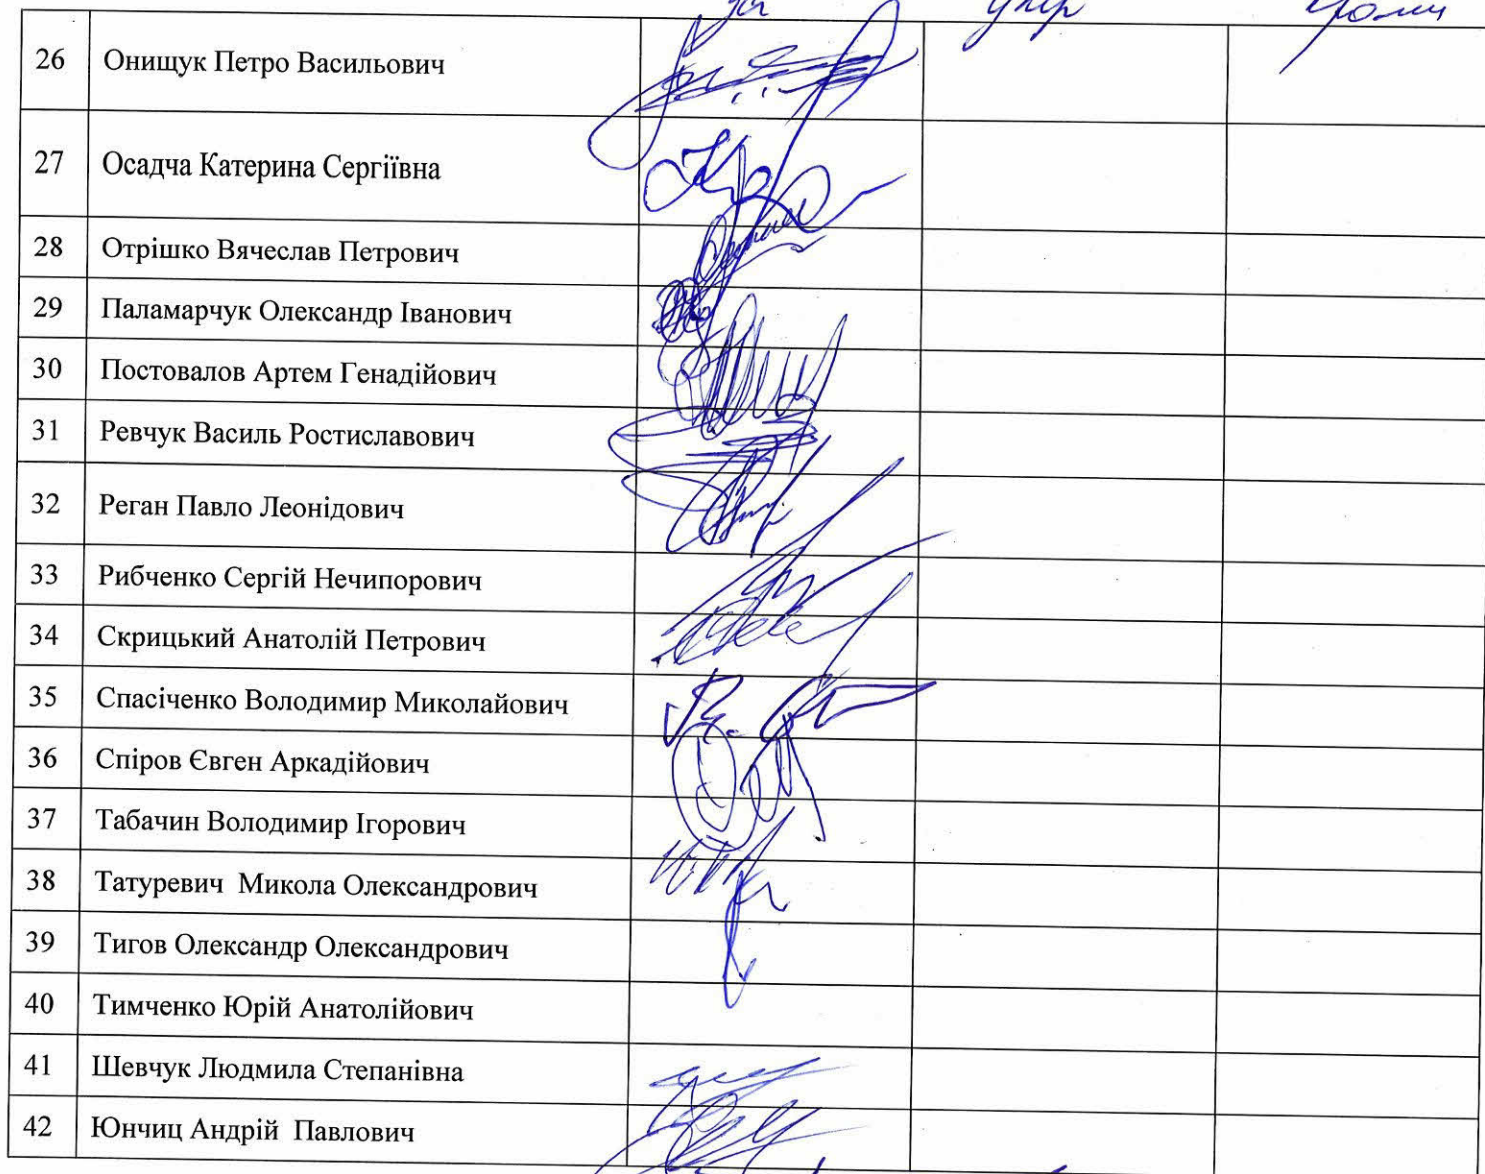 за утр проти
26 Онищук Петро Васильович
27 Осадча Катерина Сергіївна
28 Отрішко Вячеслав Петрович
29 Паламарчук Олександр Іванович
30 Постовалов Артем Генадійович
31 Ревчук Василь Ростиславович
32 Реган Павло Леонідович
33 Рибченко Сергій Нечипорович
34 Скрицький Анатолій Петрович
35 Спасіченко Володимир Миколайович
36 Спіров Євген Аркадійович
37 Табачин Володимир Ігорович
38 Татуревич Микола Олександрович
39 Тигов Олександр Олександрович
40 Тимченко Юрій Анатолійович
41 Шевчук Людмила Степанівна
42 Юнчиц Андрій Павлович